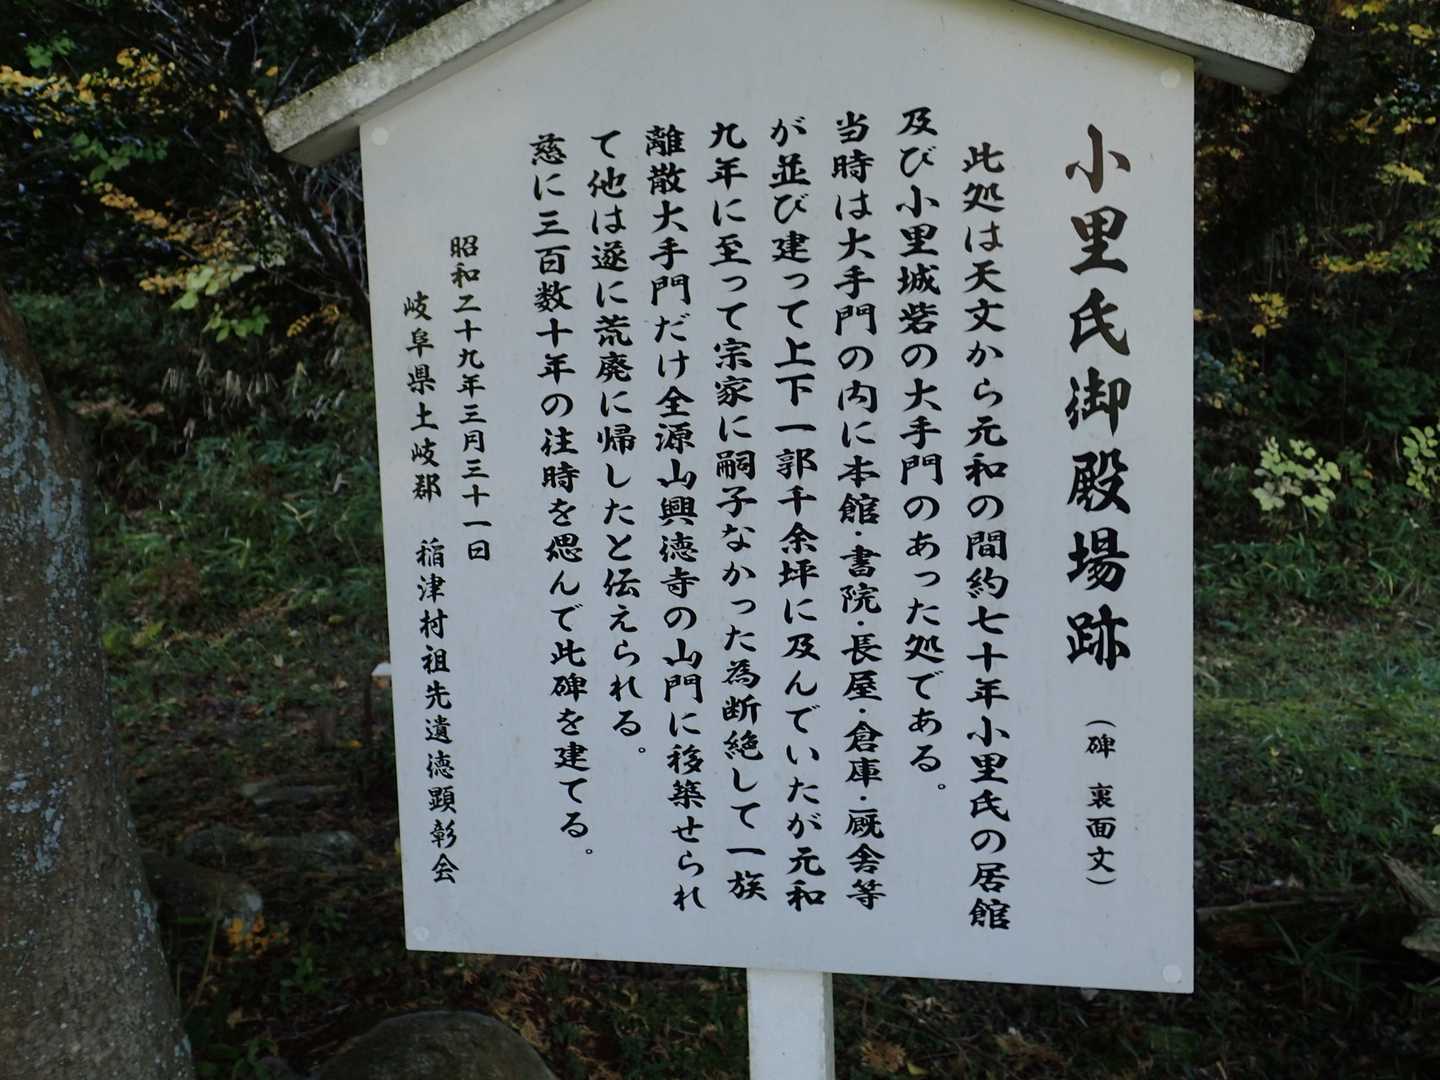 小里氏御殿場跡 (碑 裏面文)
此処は天文から元和の間約七十年小里氏の居館
及び小里城砦の大手門のあった処である。
当時は大手門の内に本館・書院・長屋・倉庫・厩舎等
が並び建って上下一郭千余坪に及んでいたが元和
九年に至って宗家に嗣子なかった為断絶して一族
離散大手門だけ全源山興徳寺の山門に移築せられ
て他は遂に荒廃に帰したと伝えられる。
慈に三百数十年の往時を偲んで此碑を建てる。
昭和二十九年三月三十一日
岐阜県土岐郡 稲津村祖先遺徳顕彰会